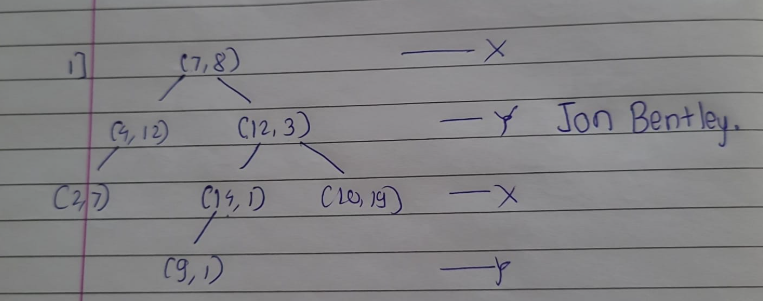 1] (7,8) — X
(4,12) (12,3) — Y Jon Bentley.
(2,7) (14,1) (20,19) — X
(9,1) — Y